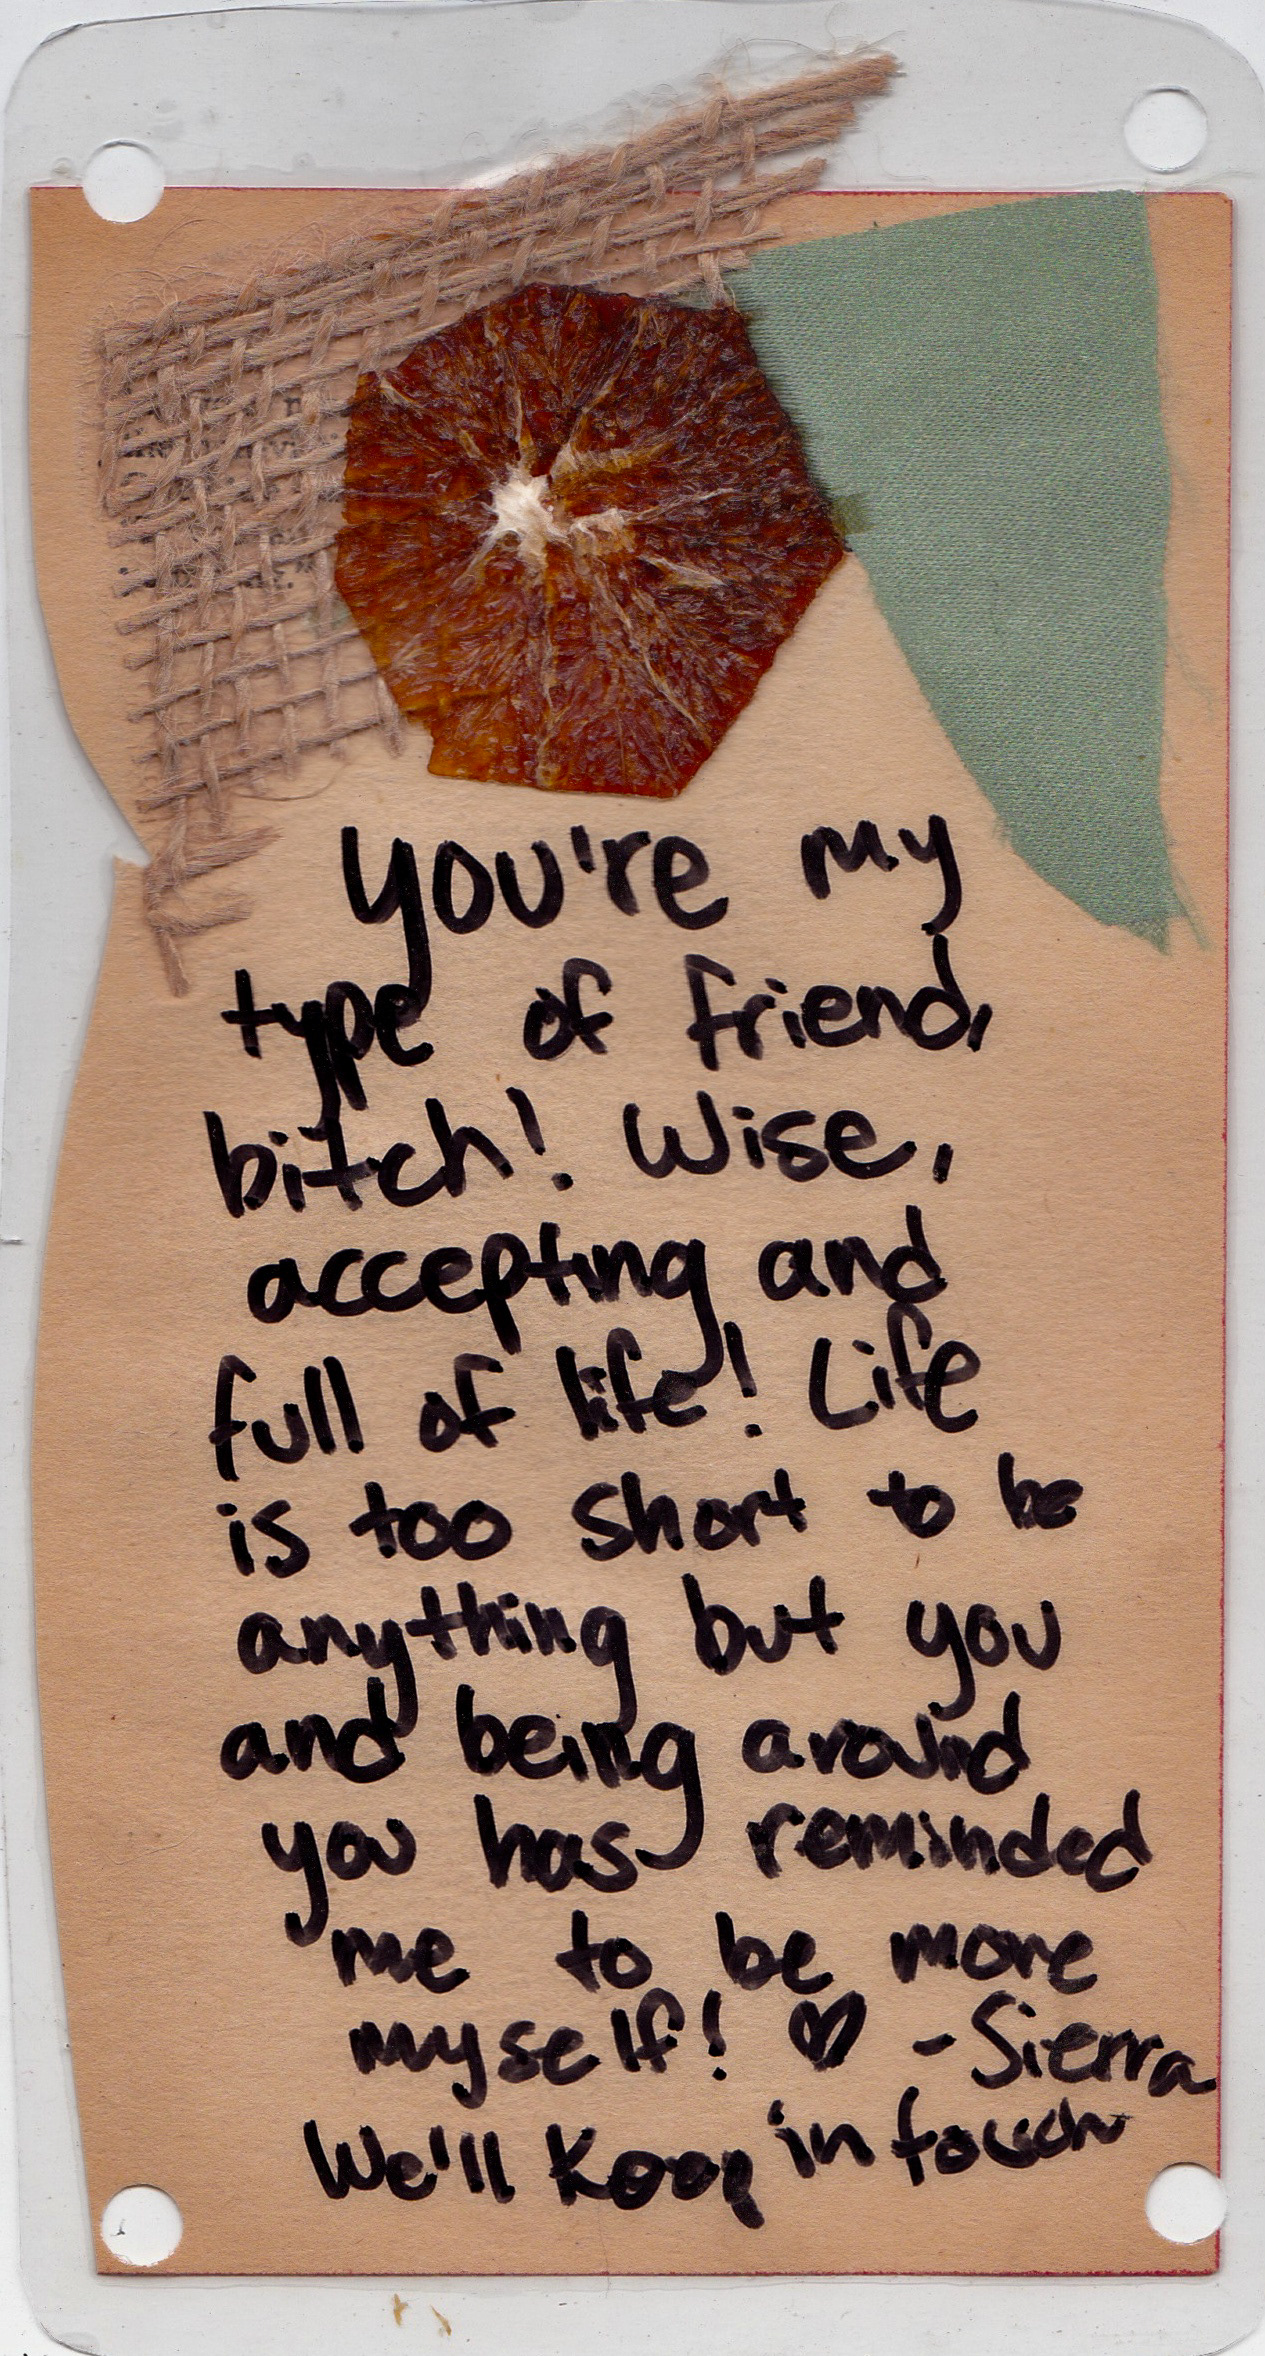 you're my
type of friend,
bitch! Wise,
accepting and
full of life! Life
is too short to be
anything but you
and being around
you has reminded
me to be more
myself! ♡ - Sierra
We'll Keep in touch